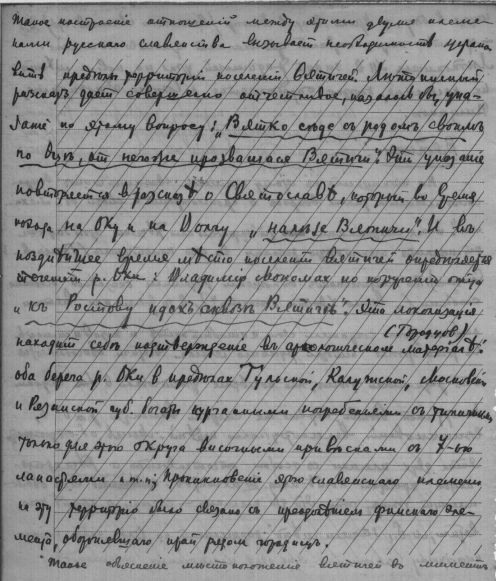 Такое настроение отношений между этими двумя племе-
нами русского славянства вызывает необходимость устано-
вить пределы территории поселений Вятичей. Летописный
разсказъ даетъ совершенно отчетливое, казалось бы, ука-
заніе по этому вопросу: „Вятко сѣде съ родомъ своимъ
по Оцѣ, отъ негоже прозвашася Вятичи". Это указание
повторяется в разсказѣ о Святославѣ, который во время
похода на Оку и на Волгу „налѣзе Вятичи". И въ
позднѣйшее время мѣсто поселений вятичей определяется
течением р. Оки: Владимiр Мономах по поручению отца
и къ Ростову идохъ сквозѣ Вятичѣ". Эта локализацiя
(Городцов)
находит себѣ подтверждение въ археологическом матерiалѣ:
оба берега р. Оки в пределах Тульской, Калужской, Московской
и Рязанской губ. богаты курганными погребениями съ типичными
только для этого округа височными привѣсками съ 7-ью
лопастями и т. п. Проникновение этого славянского племени
на эту территорiю было связано съ преодолѣнием финского эле-
мента, оборонявшаго край рядом городищъ.
Такое объяснение мѣстоположения вятичей въ